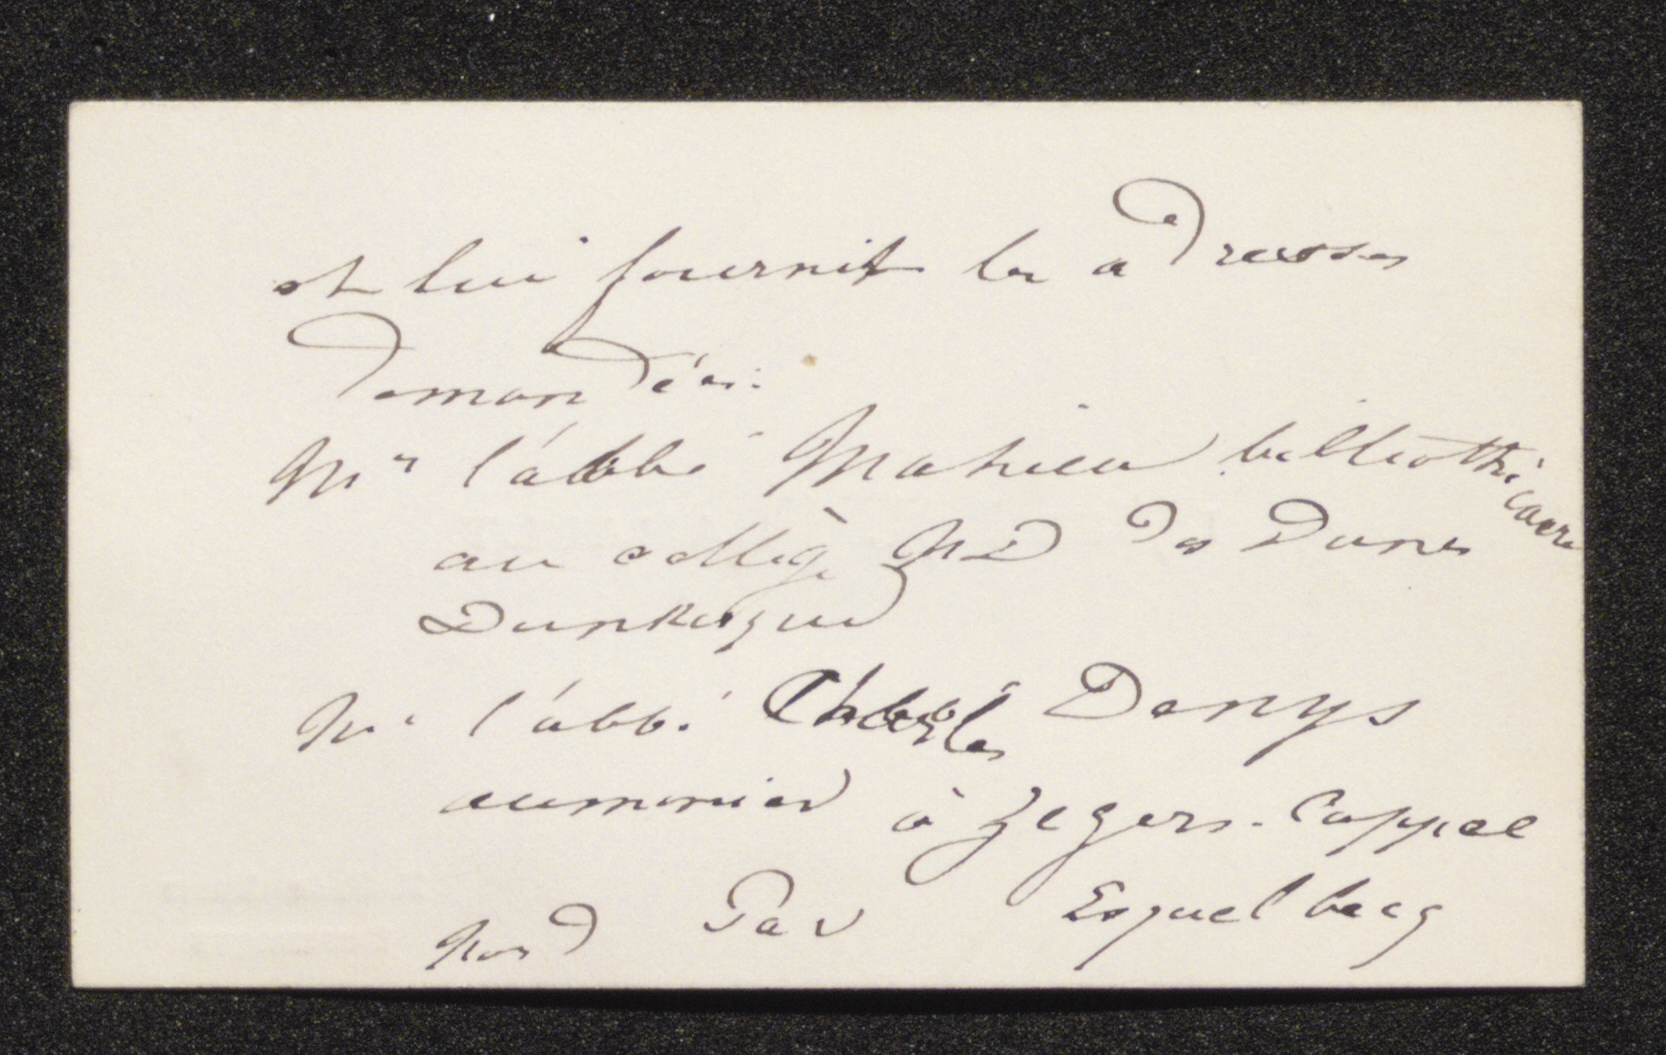 et lui fournit les adresses
demandées:
Mr l'abbé Mahieu bibliothécaire
au collège ND des Dunes
Dunkerque
Mr l'abbé Charles Denys
aumonier à Zegers-Cappel
Nord Par Esquelbecq